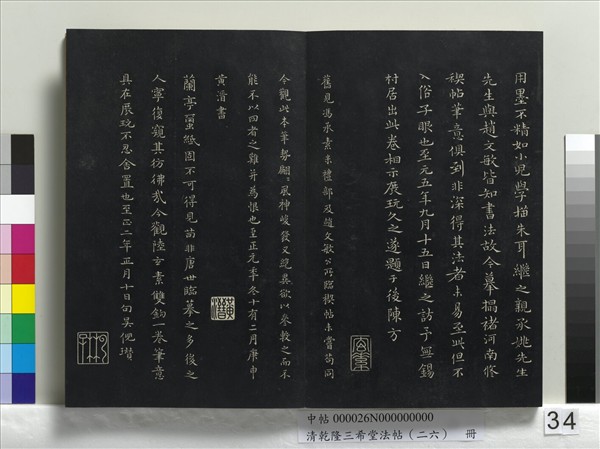 用墨不精如小兒學描朱耳繼之親承姚先生
先生與趙文敏皆知書法故今摹搨褚河南脩
禊帖筆意俱到非深得其法者未易至此但不
入俗子眼也至元五年九月十五日繼之訪予無錫
村居出此卷相示展玩久之遂題于後陳方
舊見馮承素米禮部及趙文敏公所臨禊帖未嘗苟同
今觀此本筆勢翩翩風神峻發又迥異欲以參較之而不
能不以四者之難并為恨也至正元季冬十有二月庚申
黃溍書
蘭亭蠒紙固不可得見苗非唐世臨摹之多後之
人寧復窺其彷彿哉今觀陸玄素雙鉤一卷筆意
具在展玩不忍舍置也至正二年五月十日句吳倪瓚
黃溍
申帖 000026N000000000
清乾隆三希堂法帖(二六) 冊
34